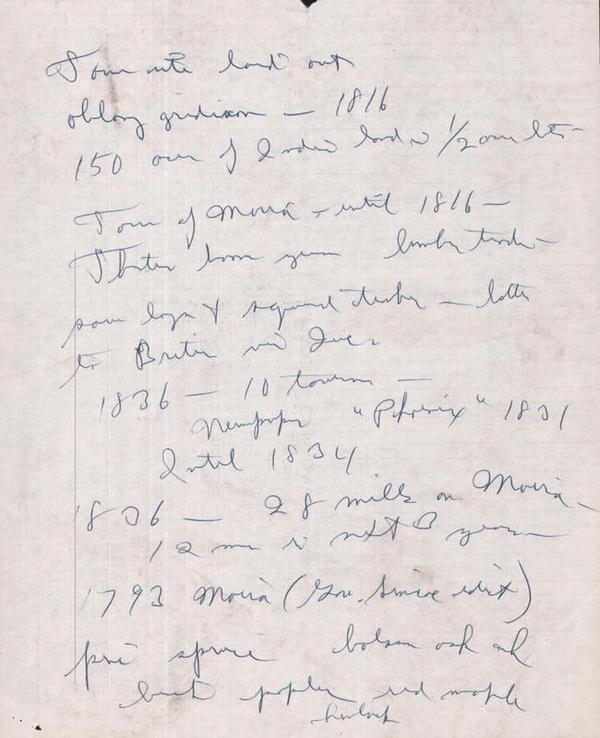 Town site laid out
oblong gridiron — 1816
150 acres of Indian land in 1/2 acre lots —
Town of Moira - until 1816 —
Thirties boom years lumber trade —
saw logs & squared timber — latter
to Britain via Quebec
1836 — 10 taverns —
Newspaper "Phoenix" 1831
Until 1834
1836 — 28 mills on Moira —
12 more in next 3 years —
1793 Moira (Gov. Simcoe edict)
pine spruce balsam oak ash
birch poplar red maple
hemlock